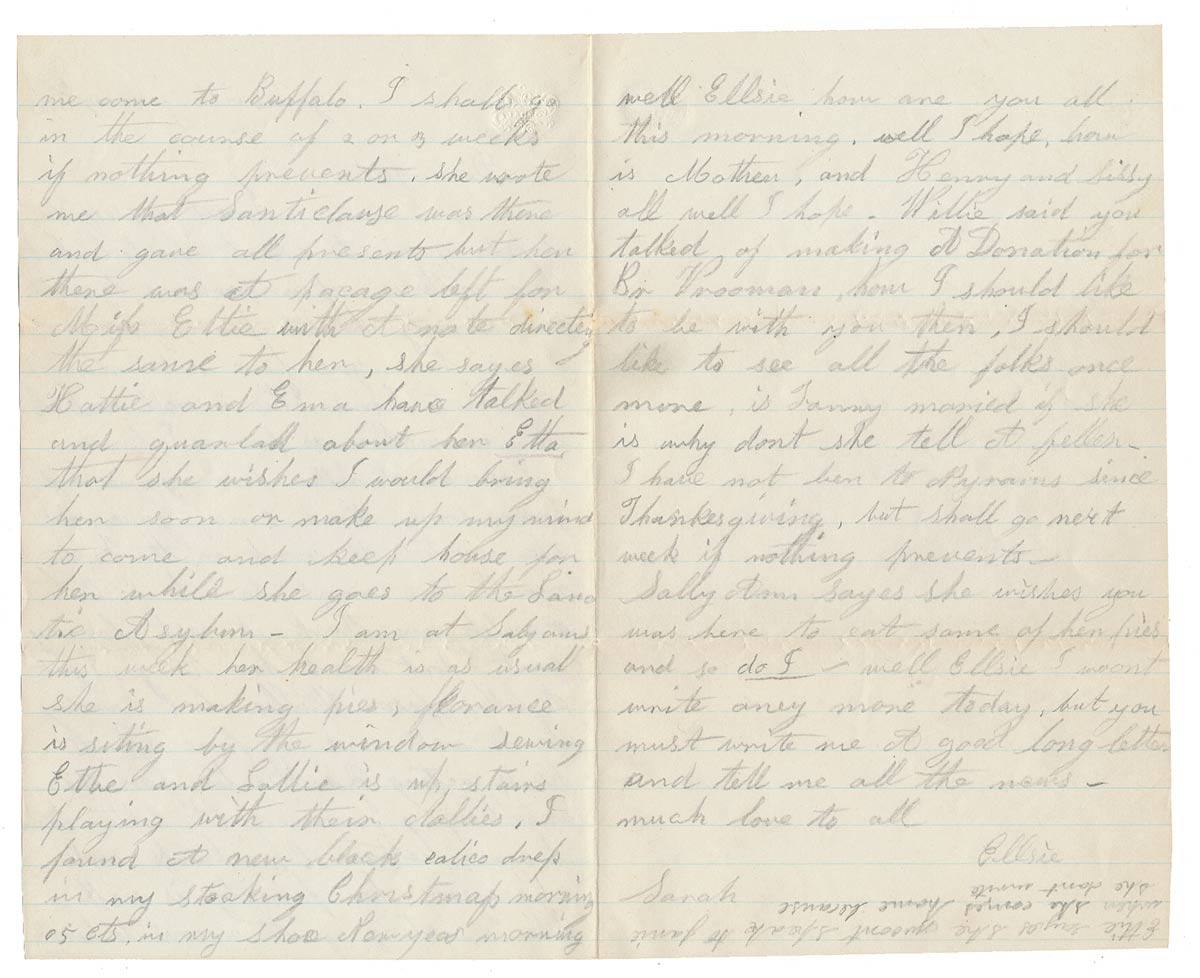 me come to Buffalo. I shall go
in the course of 2 or 3 weeks
if nothing prevents. she wrote
me that Santiclause was there
and gave all presents but her
there was A pacage left for
Miss Ettie with A note directing
the same to her, she sayes
Hattie and Ema have talked
and quarlad about her Etta
that she wishes I would bring
her soon or make up my mind
to come and keep house for
her while she goes to the Luna
tic Asylum - I am at
this week her health is as usual
she is making pies, florance
is siting by the window sewing
Ettie and Lollie is up stairs
playing with their dollies, I
found A new black calico dress
in my stocking Christmass morning
05 cts. in my shoe Newyeas morning
well Ellsie how are you all
this morning, well I hope, how
is Mother, and Henry and Sissy
all well I hope - Willie said you
talked of making A Donation for
Br Vrooman, how I should like
to be with you then, I should
like to see all the folks once
more, is Fanny maried if she
is why dont she tell A feller -
I have not ben to Byrams since
Thanksgiving, but shall go next
week if nothing prevents -
Sally Ann sayes she wishes you
was here to eat some of her pies
and so do I - well Ellsie I woont
write aney more today, but you
must write me A good long letter
and tell me all the news -
much love to all
Ellsie
Sarah
Ettie says she woont speak to Janie
when she comes home because
she dont write